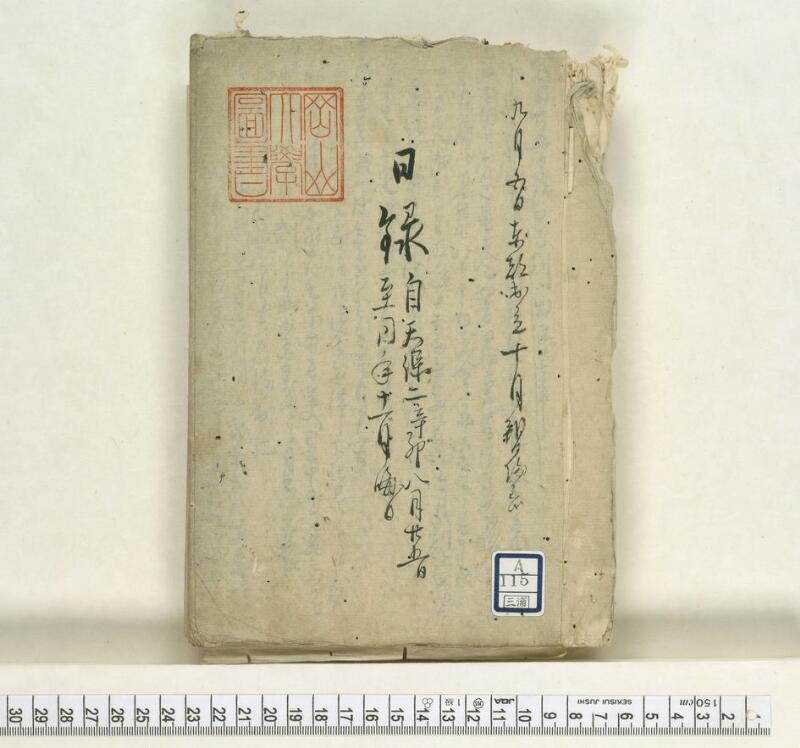 九月五日
十月
日録
自天保二辛卯八月廿五日
至同年十一月晦日
岡山
大學
圖書
A
115
三浦
30 29 28 27 26 25 24 23 22 21 20 19 18 17 16 15 14 13 12 11 10 9 8 7 6 5 4 3 2 1
1級
JES
SEKISUI JUSHI
cm
150